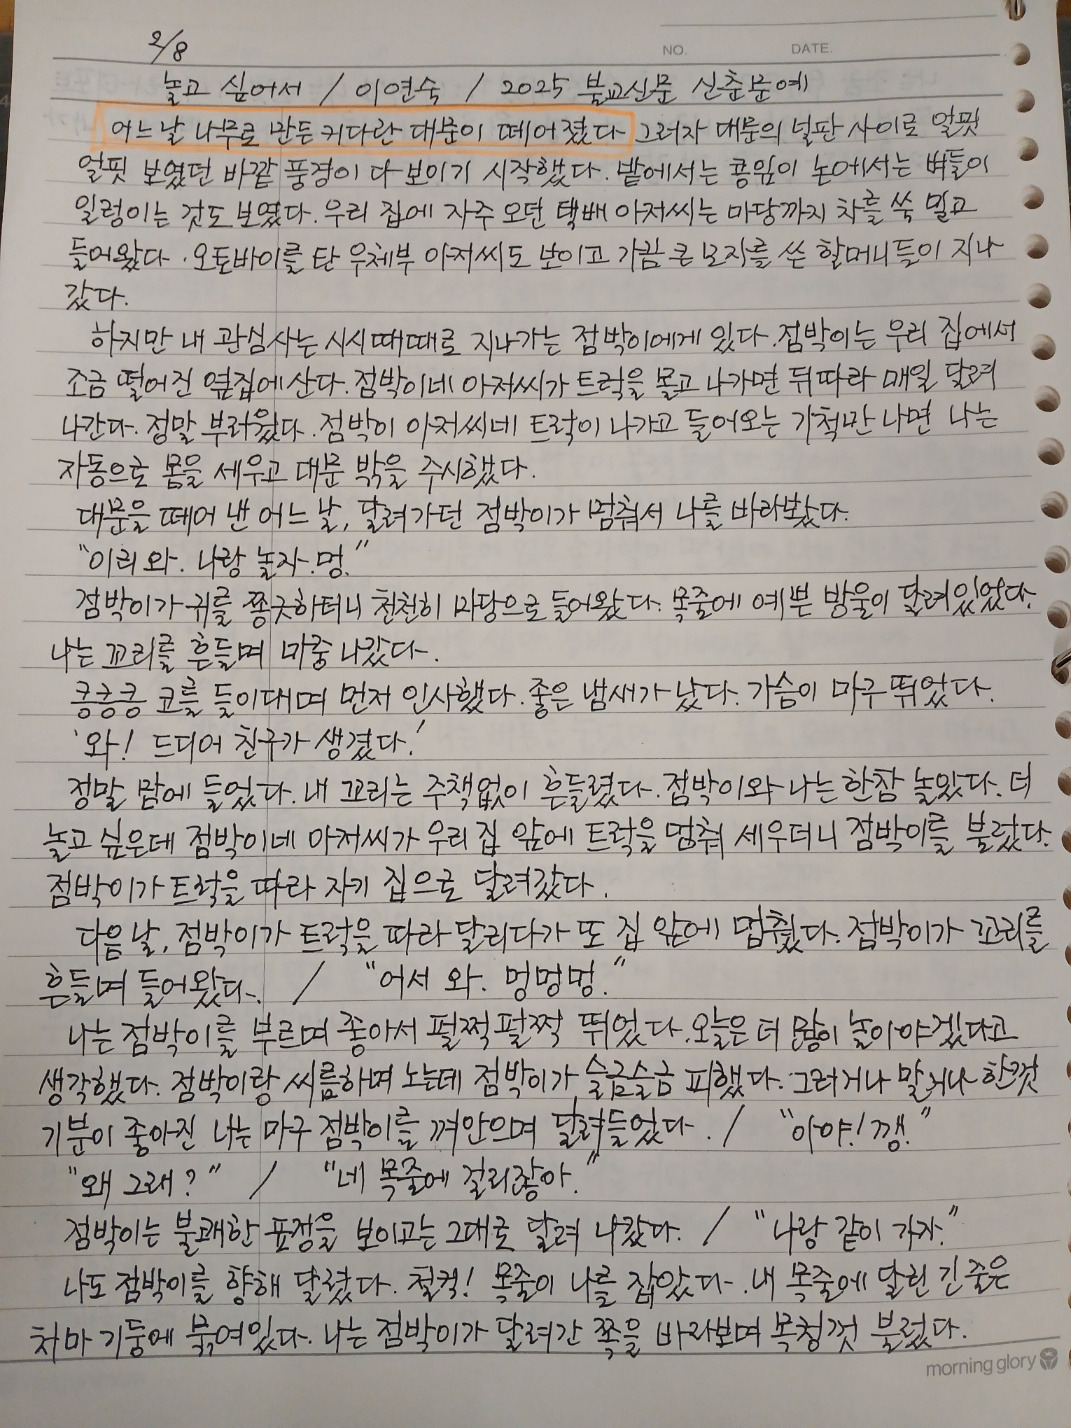 2/8
NO. DATE.
놀고 싶어서 / 이연숙 / 2025 불교신문 신춘문예
어느날 나무로 만든 커다란 대문이 떼어졌다 그러자 대문의 널판 사이로 얼핏
얼핏 보였던 바깥 풍경이 다 보이기 시작했다. 밭에서는 콩잎이 논에서는 벼들이
일렁이는 것도 보였다. 우리 집에 자주 오던 택배 아저씨는 마당까지 차를 쑥 밀고
들어왔다. 오토바이를 탄 우체부 아저씨도 보이고 가끔 큰 모자를 쓴 할머니들이 지나
갔다.
하지만 내 관심사는 시시때때로 지나가는 점박이에게 있다. 점박이는 우리 집에서
조금 떨어진 옆집에 산다. 점박이네 아저씨가 트럭을 몰고 나가면 뒤따라 매일 달려
나간다. 정말 부러웠다. 점박이 아저씨네 트럭이 나가고 들어오는 기척만 나면 나는
자동으로 몸을 세우고 대문 밖을 주시했다.
대문을 떼어 낸 어느 날, 달려가던 점박이가 멈춰서 나를 바라봤다.
"이리 와. 나랑 놀자. 멍."
점박이가 귀를 쫑긋하더니 천천히 마당으로 들어왔다. 목줄에 예쁜 방울이 달려있었다.
나는 꼬리를 흔들며 마중 나갔다.
킁킁킁 코를 들이대며 먼저 인사했다. 좋은 냄새가 났다. 가슴이 마구 뛰었다.
'와! 드디어 친구가 생겼다.'
정말 맘에 들었다. 내 꼬리는 주책없이 흔들렸다. 점박이와 나는 한참 놀았다. 더
놀고 싶은데 점박이네 아저씨가 우리 집 앞에 트럭을 멈춰 세우더니 점박이를 불렀다.
점박이가 트럭을 따라 자기 집으로 달려갔다.
다음 날, 점박이가 트럭을 따라 달리다가 또 집 앞에 멈췄다. 점박이가 꼬리를
흔들며 들어왔다. / "어서 와. 멍멍멍."
나는 점박이를 부르며 좋아서 펄쩍펄쩍 뛰었다. 오늘은 더 많이 놀아야겠다고
생각했다. 점박이랑 씨름하며 노는데 점박이가 슬금슬금 피했다. 그러거나 말거나 한껏
기분이 좋아진 나는 마구 점박이를 껴안으며 달려들었다. / "아야! 깽."
"왜 그래?" / "네 목줄에 걸리잖아."
점박이는 불쾌한 표정을 보이고는 그대로 달려 나갔다. / "나랑 같이 가자."
나도 점박이를 향해 달렸다. 철컥! 목줄이 나를 잡았다. 내 목줄에 달린 긴 줄은
처마 기둥에 묶여있다. 나는 점박이가 달려간 쪽을 바라보며 목청껏 불렀다.
morning glory